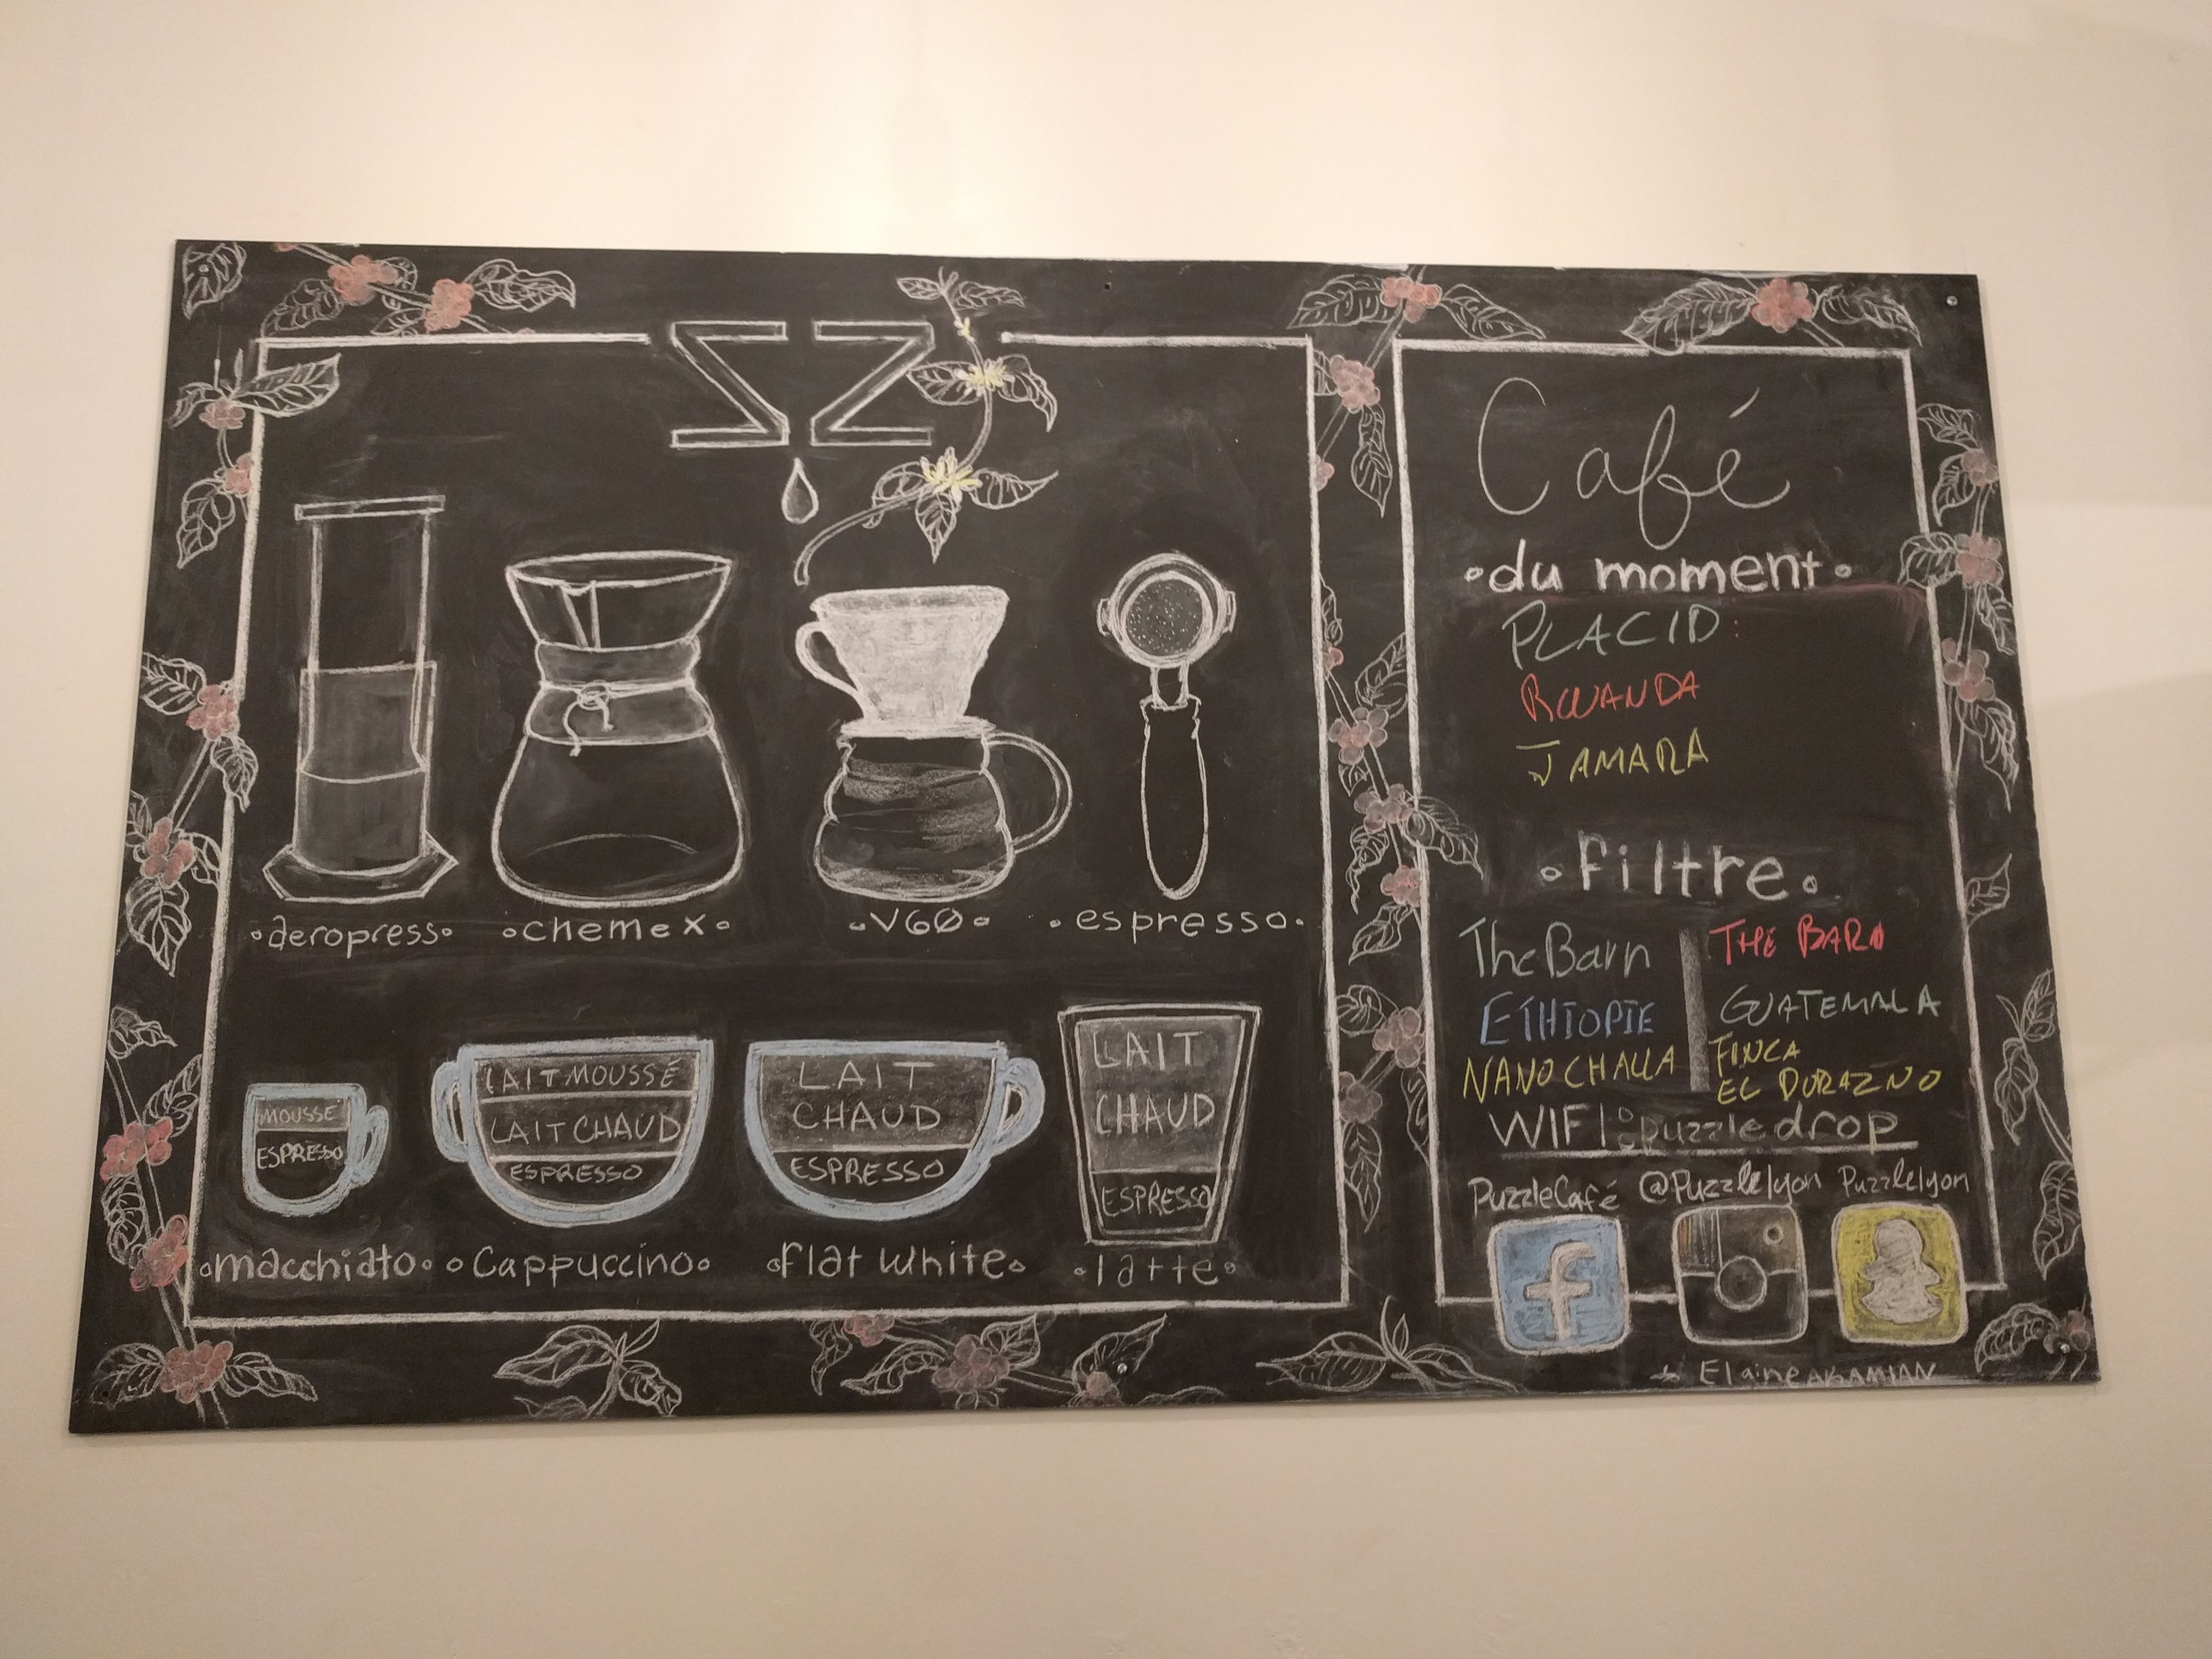 aeropress
chemex
V60
espresso
MOUSSE
ESPRESSO
LAIT MOUSSÉ
LAIT CHAUD
ESPRESSO
LAIT
CHAUD
ESPRESSO
LAIT
CHAUD
ESPRESSO
macchiato
Cappuccino
flat white
latte
Café
du moment
PLACID:
RWANDA
JAMARA
filtre
The Barn
ETHIOPIE
NANO CHALLA
THE BARN
GUATEMALA
FINCA
EL DURAZNO
WIFI: puzzledrop
PuzzleCafé @Puzzlelyon Puzzlelyon
f
Elaine